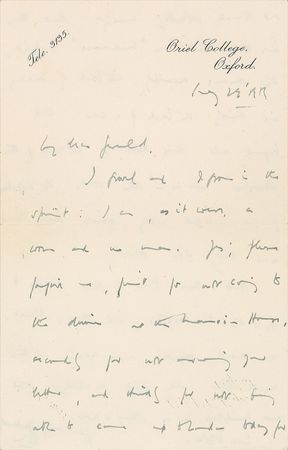 Tele. 3195.
Oriel College,
Oxford.
my dear
I and I in the
spirit: I am, as it were, a
worm and no man. Yes; please
forgive me, first for not coming to
the dinner at the Mansion House,
secondly for not answering your
letter, and thirdly for not being
able to come to London today for